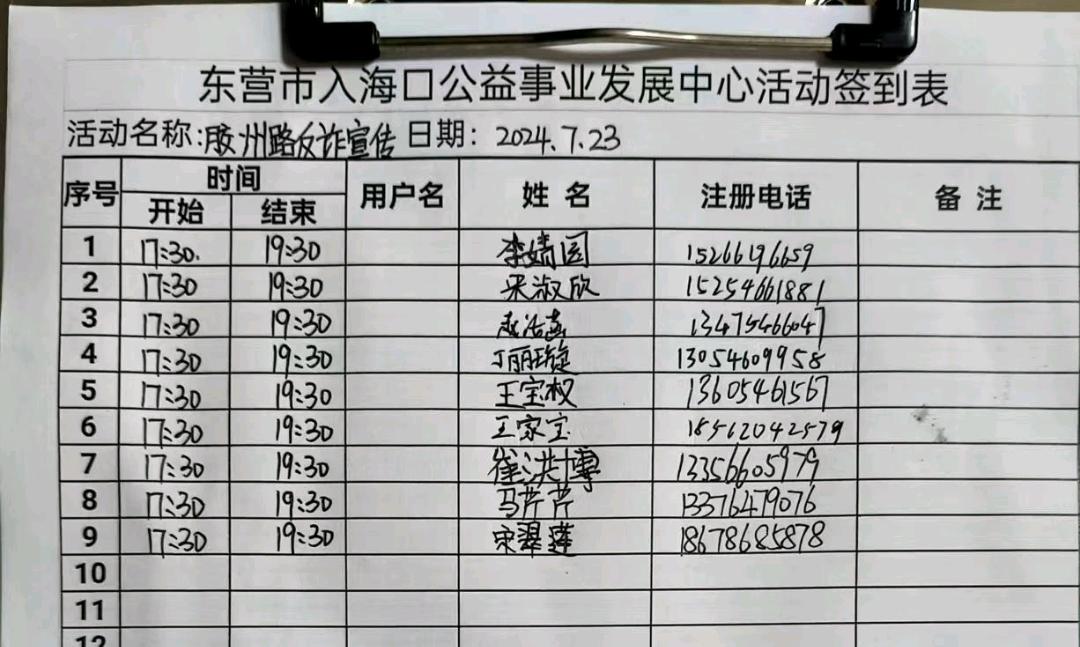 东营市入海口公益事业发展中心活动签到表
活动名称:胶州路反诈宣传 日期: 2024.7.23
序号 时间 用户名 姓名 注册电话 备注
开始 结束
1 17:30. 19:30 李婧园 15266196659
2 17:30 19:30 宋淑欣 15254661881
3 17:30 19:30 13475466047
4 17:30 19:30 丁丽璇 13054609958
5 17:30 19:30 王宝权 13605461567
6 17:30 19:30 王家宝 18562042579
7 17:30 19:30 崔洪博 13356605979
8 17:30 19:30 马芹芹 13376479076
9 17:30 19:30 宋翠莲 18678685878
10
11
12